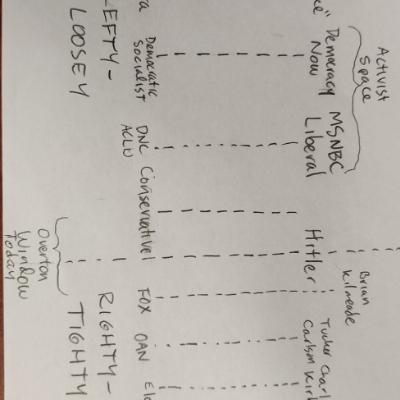 Activist
Space
Brian
Kilmeade
Democracy
Now
MSNBC
Liberal
Hitler
Tucker
Carlson
Charl
Kirk
Democratic
Socialist
DNC
ACLU
Conservative
FOX
OAN
EFTY-
LOOSEY
RIGHTY-
TIGHTY
Overton
Window
Today